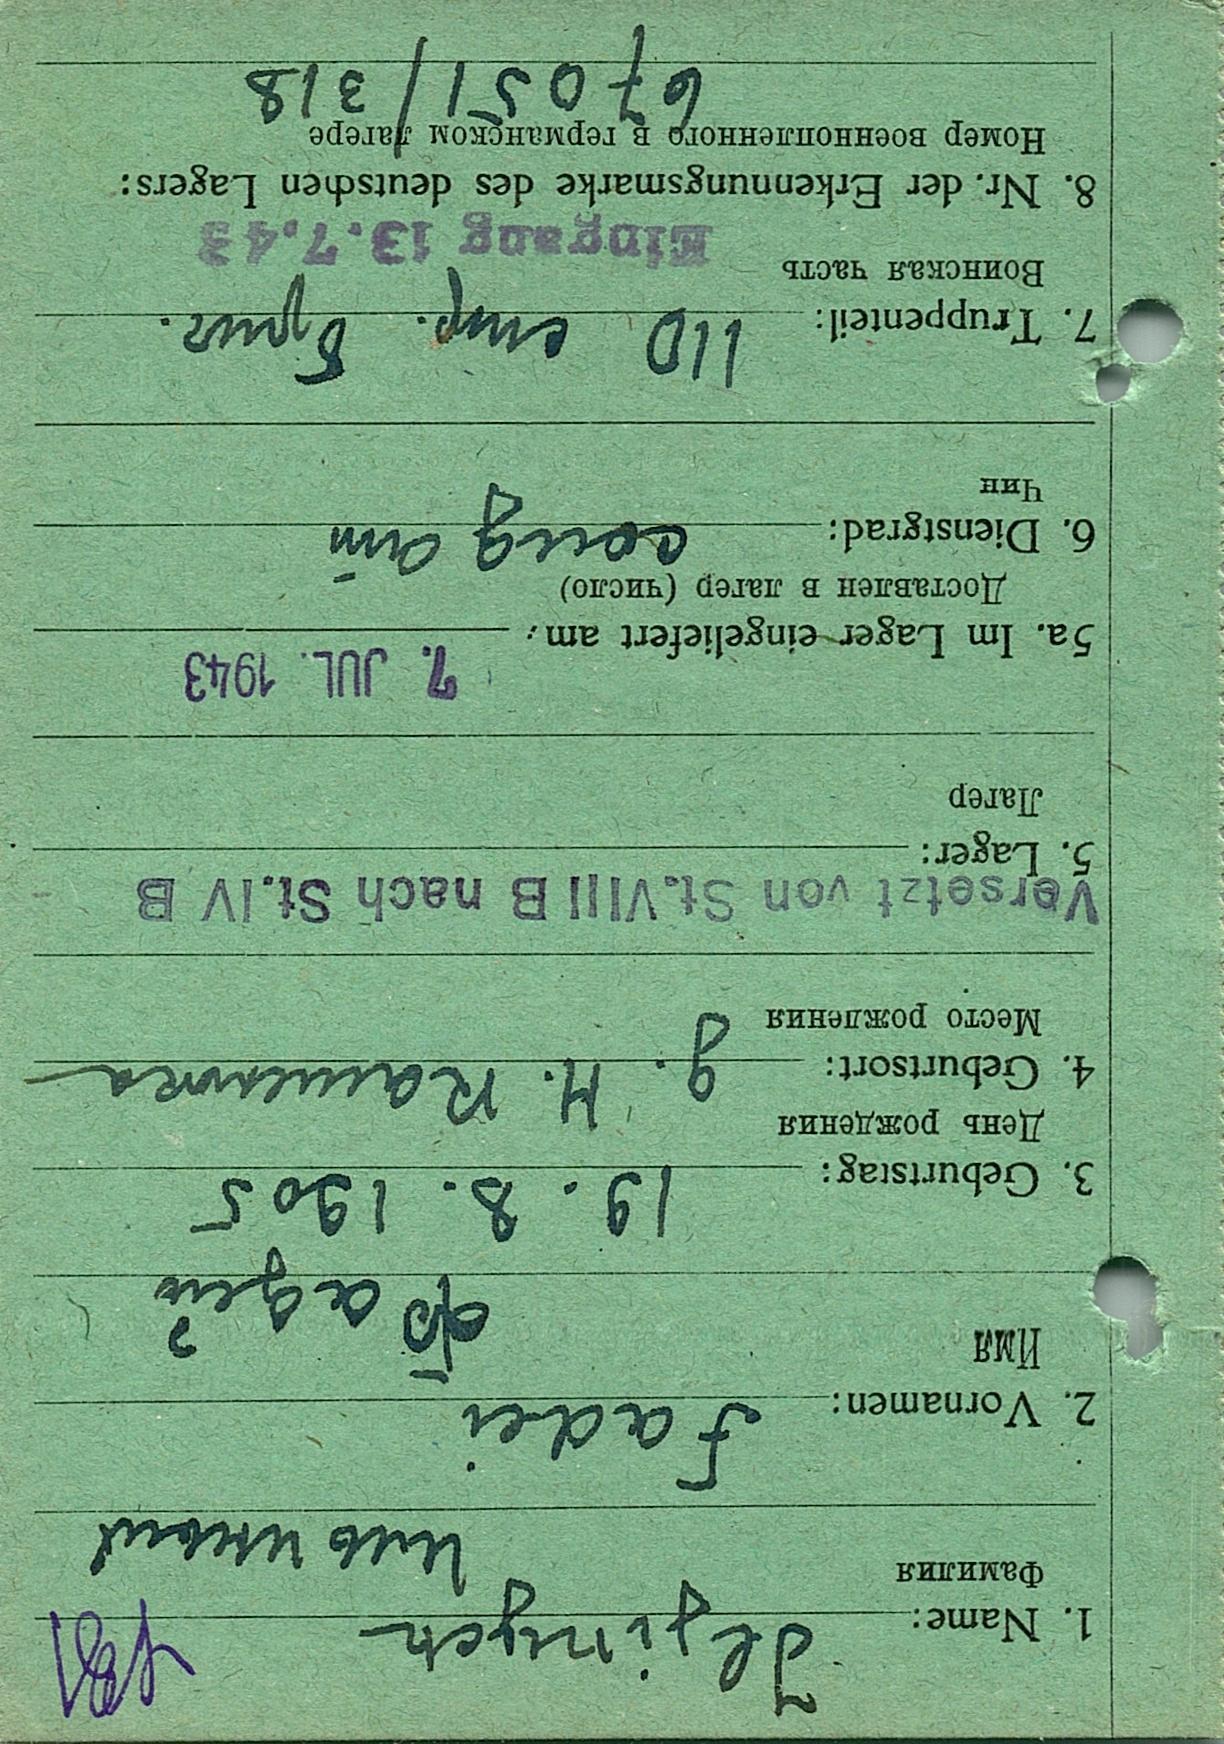 1. Name:
Фамилия
2. Vornamen: Fadei
Имя
Фадей
3. Geburtstag: 19. 8. 1905
День рождения
4. Geburtsort: д. Н. Каменка
Место рождения
Versetzt von St.VIII B nach St.IV B
5. Lager:
Лагер
7. JUL. 1943
5a. Im Lager eingeliefert am:
Доставлен в лагер (число)
6. Dienstgrad: солдат
Чин
7. Truppenteil: 110 стр. бриг.
Воинская часть
Eingang 13.7.43
8. Nr. der Erkennungsmarke des deutschen Lagers:
Номер военнопленного в германском лагере
67051/318